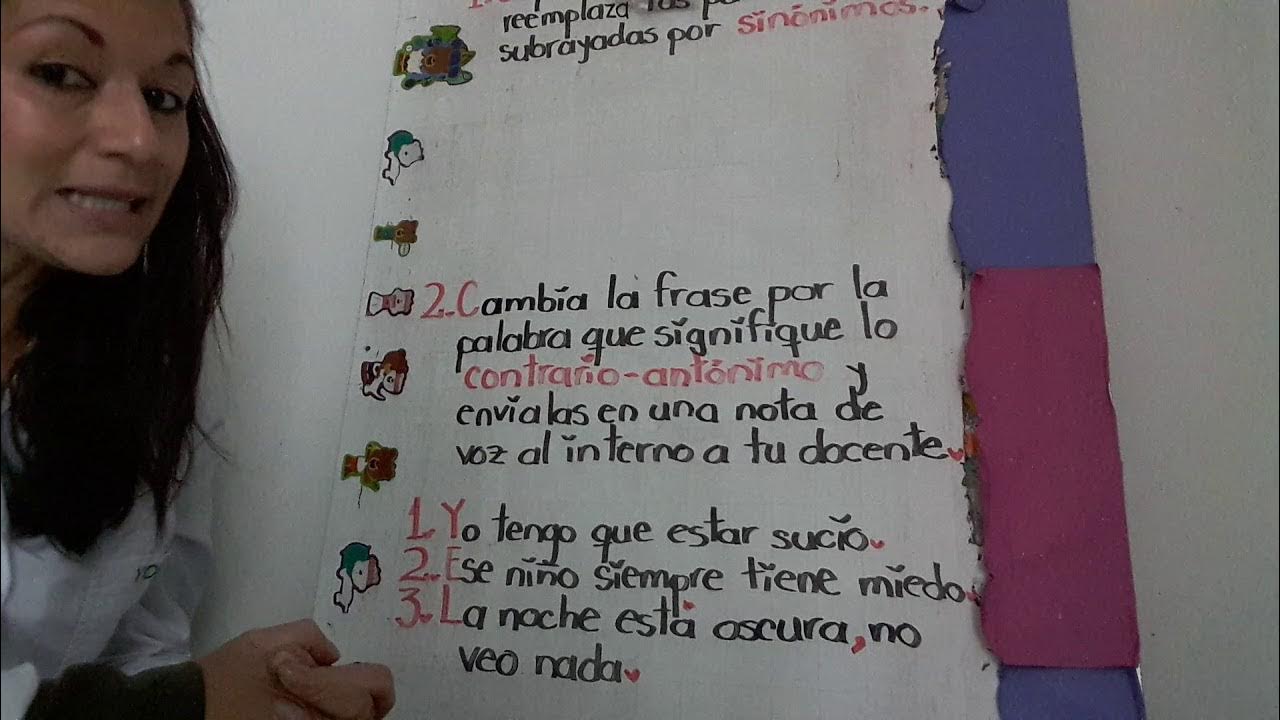 reemplaza las
subrayadas por sinónimos.
2. Cambia la frase por la
palabra que signifique lo
contrario-antónimo y
envialas en una nota de
voz al interno a tu docente.
1. Yo tengo que estar sucio.
2. Ese niño siempre tiene miedo.
3. La noche está oscura, no
veo nada.